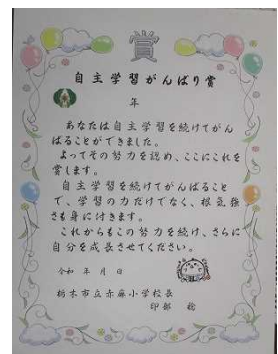 賞
自主学習がんばり賞
年
あなたは自主学習を続けてがん
ばることができました。
よってその努力を認め、ここにこれを
賞します。
自主学習を続けてがんばること
で、学習の力だけでなく、根気強
さも身に付きます。
これからもこの努力を続け、さらに
自分を成長させてください。
令和 年 月 日
栃木市立赤麻小学校長
印部 稔